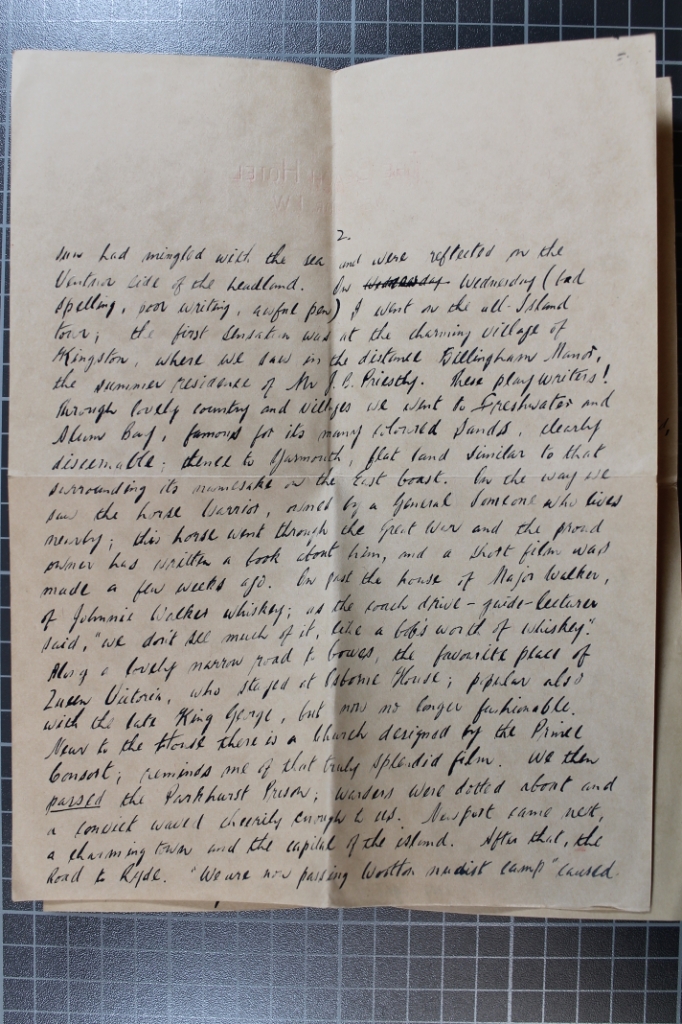 2.
sun had mingled with the sea and were reflected on the
Ventnor side of the headland. On Wednesday (bad
spelling, poor writing, awful pen) I went on the all-Island
tour; the first sensation was at the charming village of
Kingston, where we saw in the distance Billingham Manor,
the summer residence of Mr J.B. Priestly. These playwriters!
Through lovely country and villages we went to Freshwater and
Alum Bay, famous for its many coloured sands, clearly
discernable; thence to Yarmouth, flat land similar to that
surrounding its namesake on the East Coast. On the way we
saw the horse Warrior, owned by a General Someone who lives
nearby; this horse went through the Great War and the proud
owner has written a book about him, and a short film was
made a few weeks ago. On past the house of Major Walker,
of Johnnie Walker whiskey; as the coach drive-guide-lecturer
said, "we don't see much of it, like a bob's worth of whiskey."
Along a lovely narrow road to Cowes, the favourite place of
Queen Victoria, who stayed at Osborne House; popular also
with the late King George, but now no longer fashionable.
Near to the House there is a Church designed by the Prince
Consort; reminds me of that truly splendid film. We then
passed the Parkhurst Prison; warders were dotted about and
a convict waved cheerily enough to us. Newport came next,
a charming town and the capital of the island. After that, the
Road to Ryde. "We are now passing Wootton nudist camp" caused